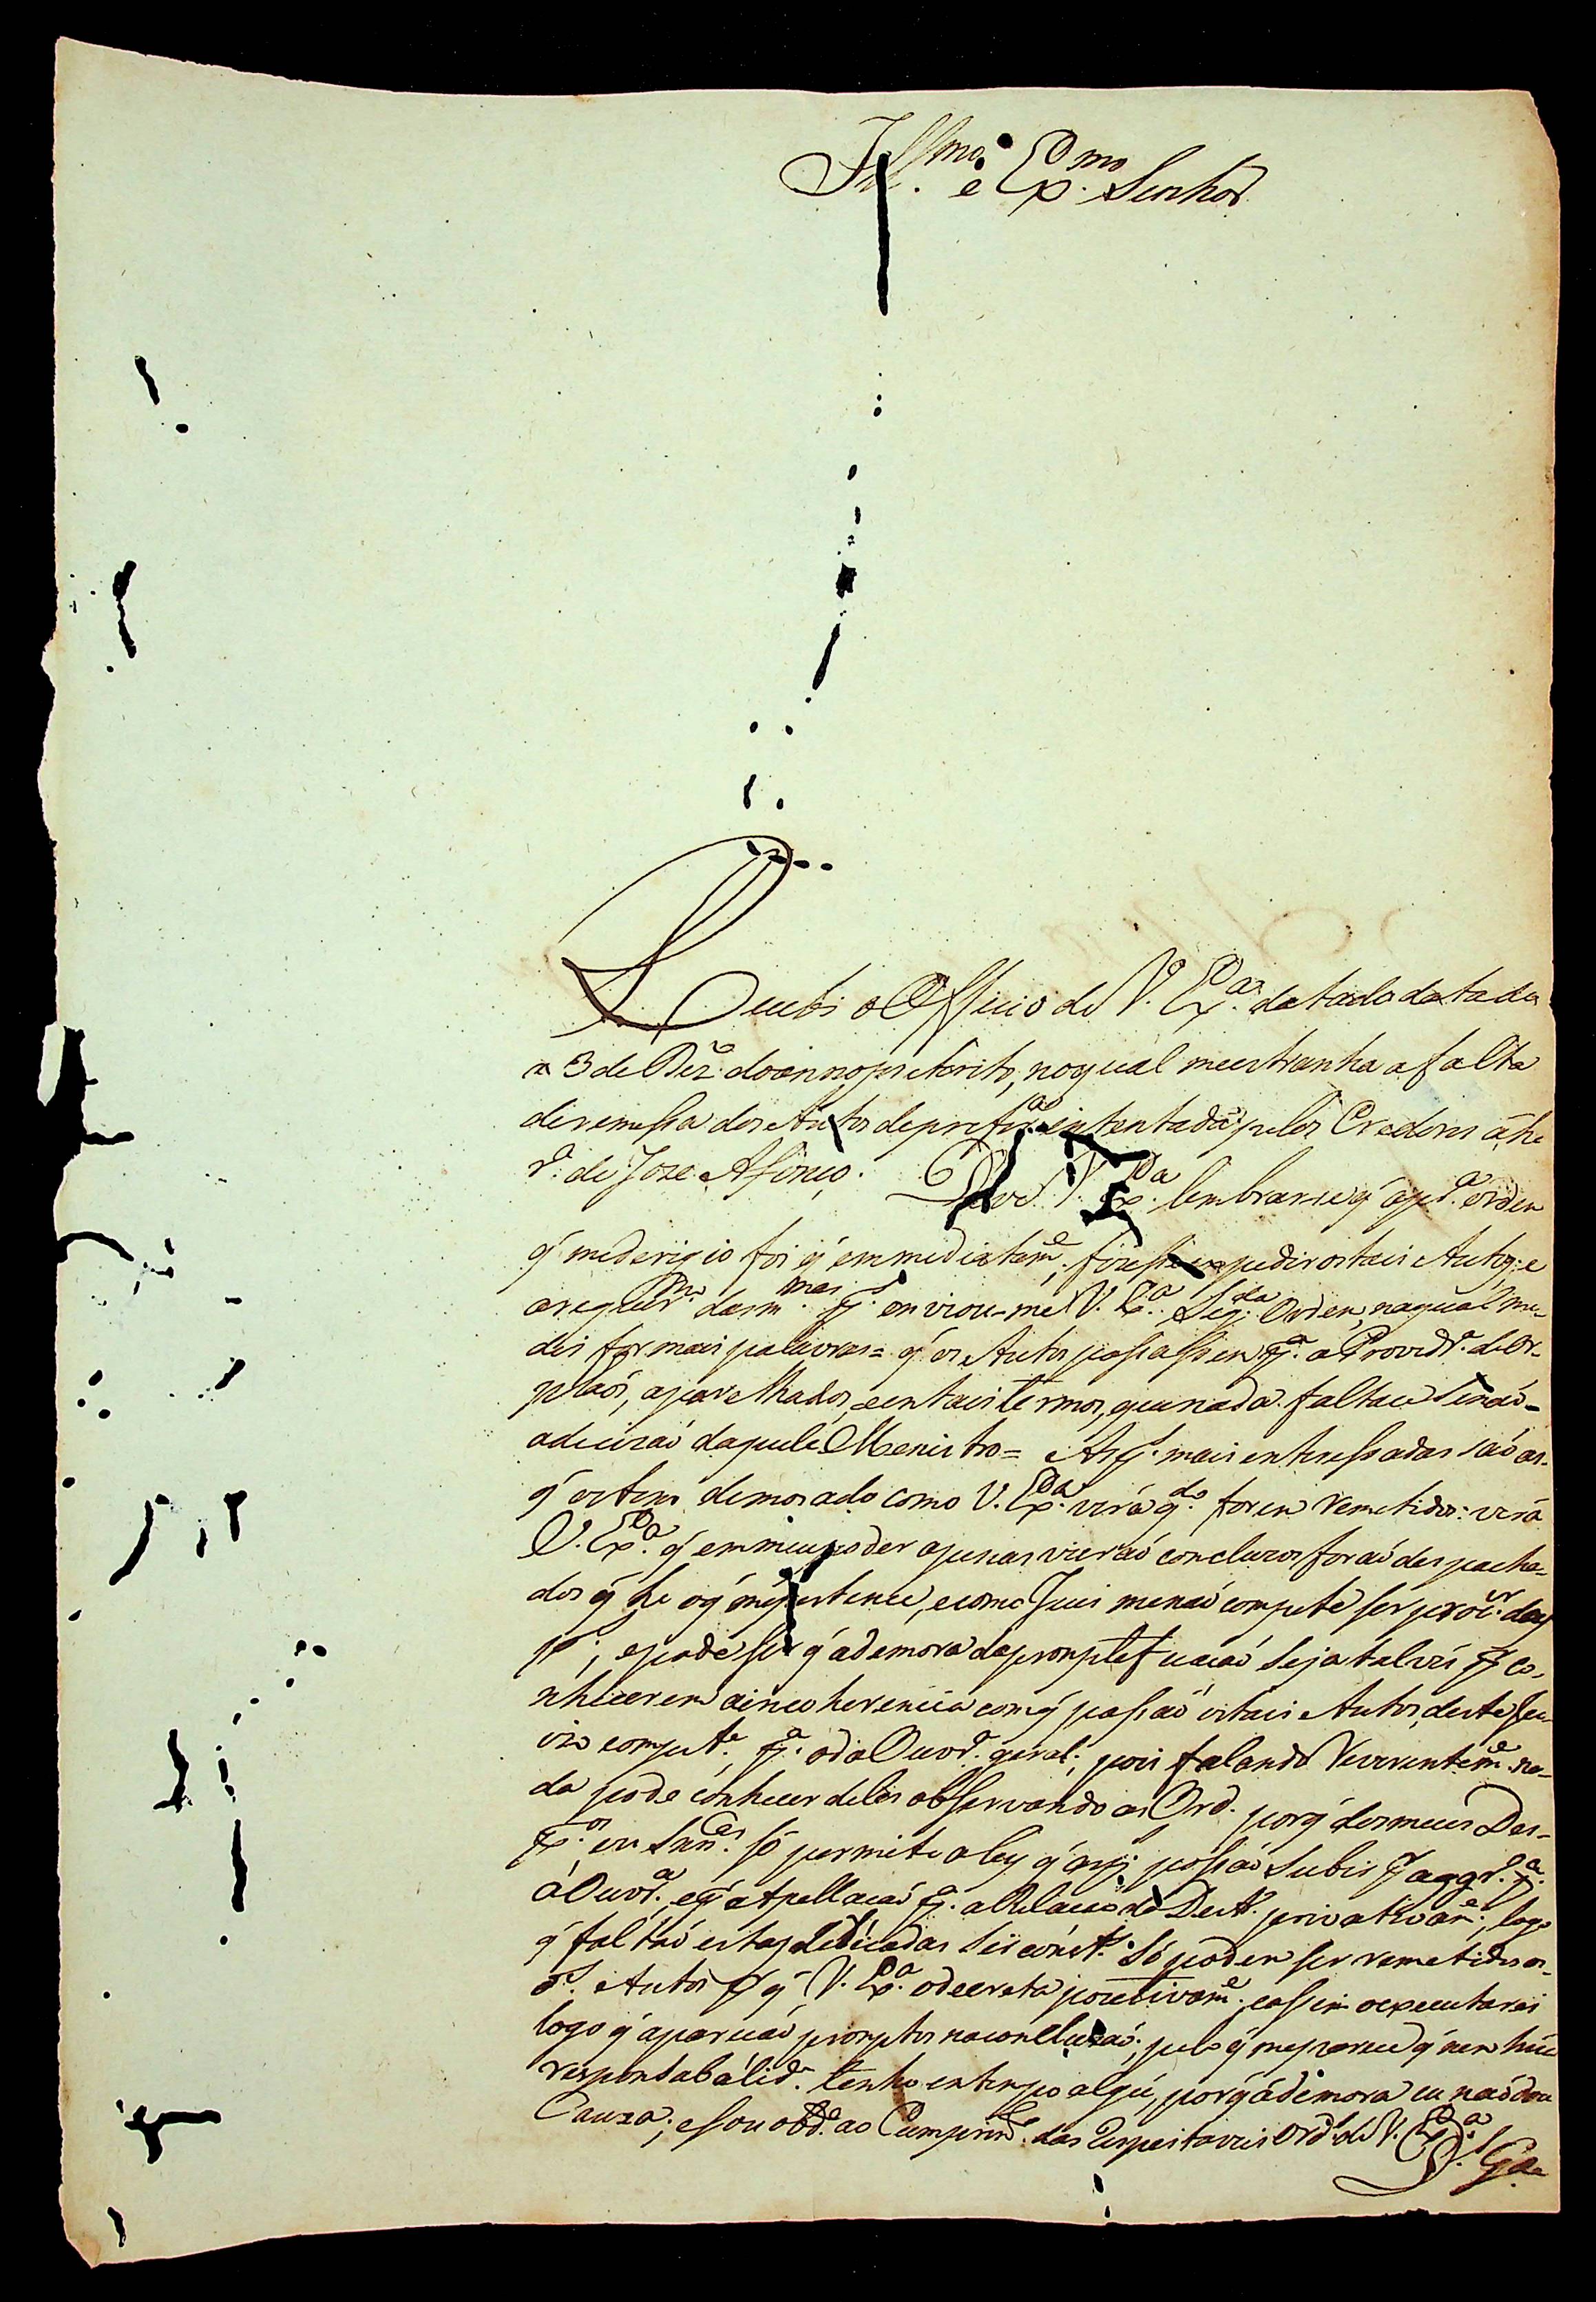 Ill.mo e Ex.mo Senhor
Recebi o Officio de V. Ex.a datado datado
a 3 de Dez.o do anno preterito, no qual me estranha a falta
de remessa dos Autos de pref.cao intentada pelos Credores á he
r.a de Joze Afonço. Deve V. Ex.a lembrarse q' a pr.a ordem
q' me derigio foi q' emmediatam.e fizesse expedir os tais Autos; e
a requerm.to das m.mas p.s enviou-me V. Ex.a seg.da Ordem, na qual me
dis formais palavras = q' os Autos passassem p.a a Provedr.a de Or-
phaós, aparelhados, e em tais termos, que nada faltace senaó-
a decizaó daquele Menistro = As p.s mais enteressadas saó as-
q' os tem demorado como V. Ex.a verá q.do forem remetidos: verá
V. Ex.a q' em meu poder apenas vieraó concluzos foraó despacha-
dos q' he o q' me pertence, e como Juis me naó compete ser procu.or das
p.s; e pode ser q' a demora da promptefucaçaó seja talvés p.r co-
nhecerem a incoherencia com q' passaó os tais Autos, deste Jui-
zo compet.e p.a o da Ouvd.a geral; pois falando Reverentem.e na-
da pode conhecer deles observando as Ord. porq' dos meus Des-
p.os ou Sen.cas só permite a ley q' as p.s possaó subir p.r aggr.o p.a
á Ouvd.a, e p.r Appellacaó p.a a Relacaó do Destr.o privativam.e; logo
q' faltaó estas dedicadas só podem ser remetidos os
d.s Autos p.r q' V. Ex.a o decreta pozetivam.e; e assim o executarei
logo q' aparecaó promptos na concluzaó; pelo q' me parece q' nenhúa
responsabálid.e tenho em tempo algú, porq' á demora eu naó dou
Cauza; e sou obd.e ao Cumprim.to das Respeitaveis Ord.s de V. Ex.a
D.s G.de